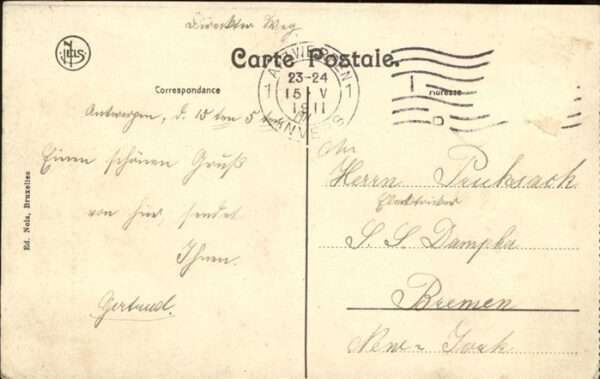 Direkter Weg
Nels
Carte Postale.
Correspondance
Adresse
ANTWERPEN
1 23-24 1
15 V
1911
ANVERS
Antwerpen, d. 15 ten 5
Einen schönen Gruß
von hier, sendet
Ihnen.
Gertrud.
An
Herrn Pruksack
Elektriker
S. S. Dampfer
Bremen
New-York
Ed. Nels, Bruxelles